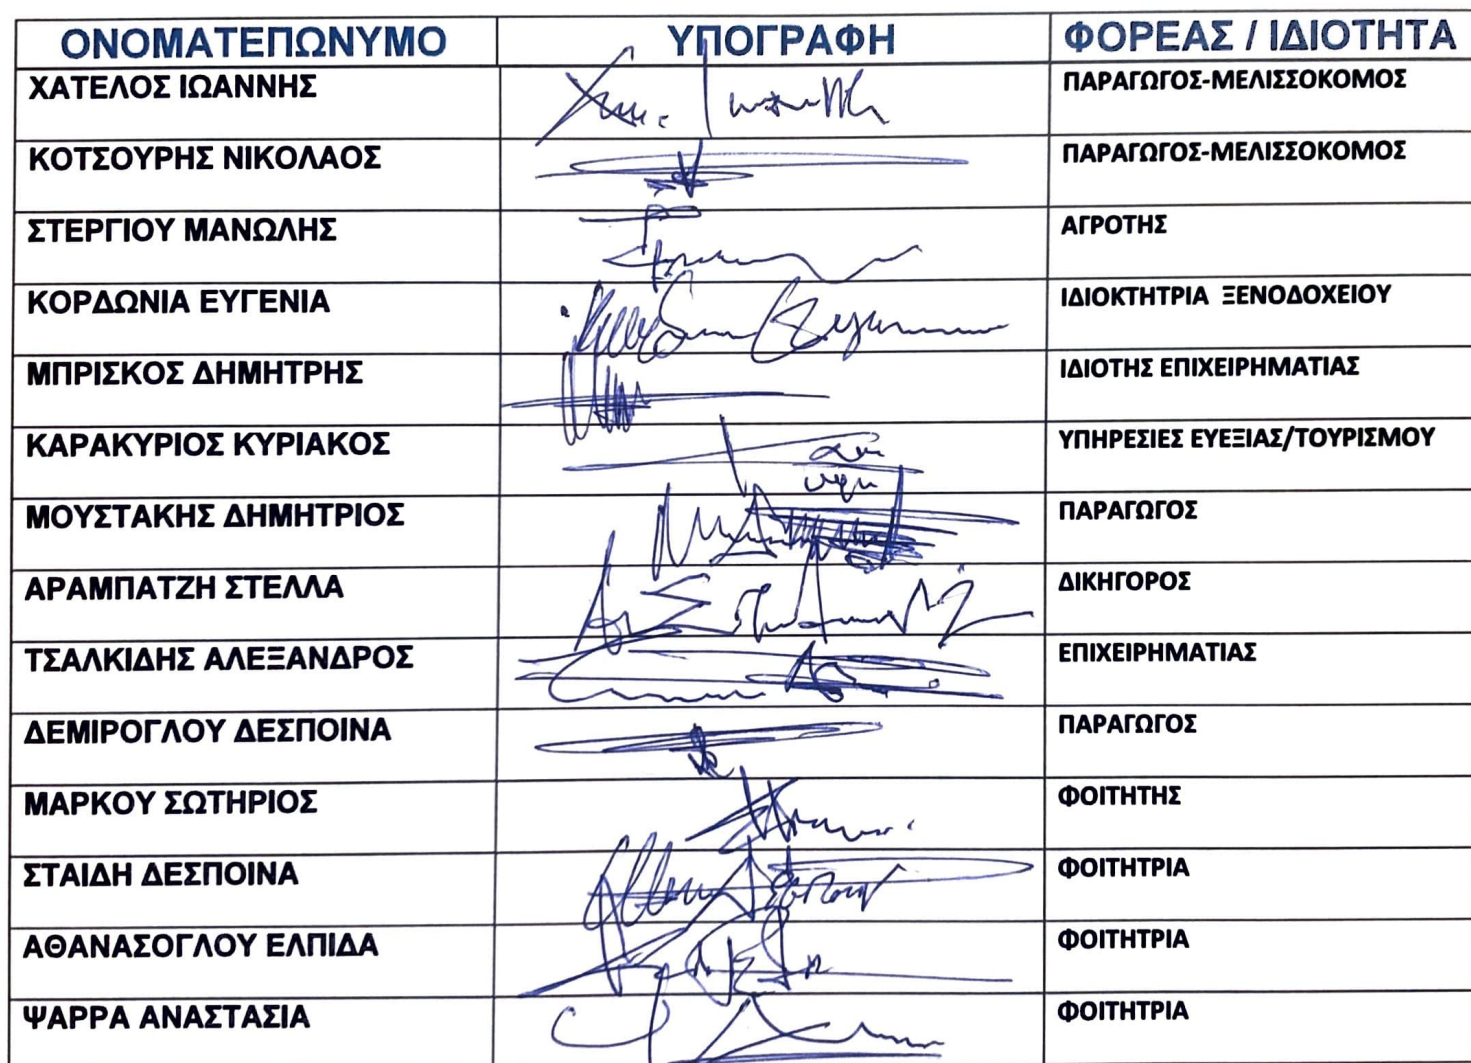 ΟΝΟΜΑΤΕΠΩΝΥΜΟ ΥΠΟΓΡΑΦΗ ΦΟΡΕΑΣ / ΙΔΙΟΤΗΤΑ
ΧΑΤΕΛΟΣ ΙΩΑΝΝΗΣ ΠΑΡΑΓΩΓΟΣ-ΜΕΛΙΣΣΟΚΟΜΟΣ
ΚΟΤΣΟΥΡΗΣ ΝΙΚΟΛΑΟΣ ΠΑΡΑΓΩΓΟΣ-ΜΕΛΙΣΣΟΚΟΜΟΣ
ΣΤΕΡΓΙΟΥ ΜΑΝΩΛΗΣ ΑΓΡΟΤΗΣ
ΚΟΡΔΩΝΙΑ ΕΥΓΕΝΙΑ ΙΔΙΟΚΤΗΤΡΙΑ ΞΕΝΟΔΟΧΕΙΟΥ
ΜΠΡΙΣΚΟΣ ΔΗΜΗΤΡΗΣ ΙΔΙΟΤΗΣ ΕΠΙΧΕΙΡΗΜΑΤΙΑΣ
ΚΑΡΑΚΥΡΙΟΣ ΚΥΡΙΑΚΟΣ ΥΠΗΡΕΣΙΕΣ ΕΥΕΞΙΑΣ/ΤΟΥΡΙΣΜΟΥ
ΜΟΥΣΤΑΚΗΣ ΔΗΜΗΤΡΙΟΣ ΠΑΡΑΓΩΓΟΣ
ΑΡΑΜΠΑΤΖΗ ΣΤΕΛΛΑ ΔΙΚΗΓΟΡΟΣ
ΤΣΑΛΚΙΔΗΣ ΑΛΕΞΑΝΔΡΟΣ ΕΠΙΧΕΙΡΗΜΑΤΙΑΣ
ΔΕΜΙΡΟΓΛΟΥ ΔΕΣΠΟΙΝΑ ΠΑΡΑΓΩΓΟΣ
ΜΑΡΚΟΥ ΣΩΤΗΡΙΟΣ ΦΟΙΤΗΤΗΣ
ΣΤΑΙΔΗ ΔΕΣΠΟΙΝΑ ΦΟΙΤΗΤΡΙΑ
ΑΘΑΝΑΣΟΓΛΟΥ ΕΛΠΙΔΑ ΦΟΙΤΗΤΡΙΑ
ΨΑΡΡΑ ΑΝΑΣΤΑΣΙΑ ΦΟΙΤΗΤΡΙΑ